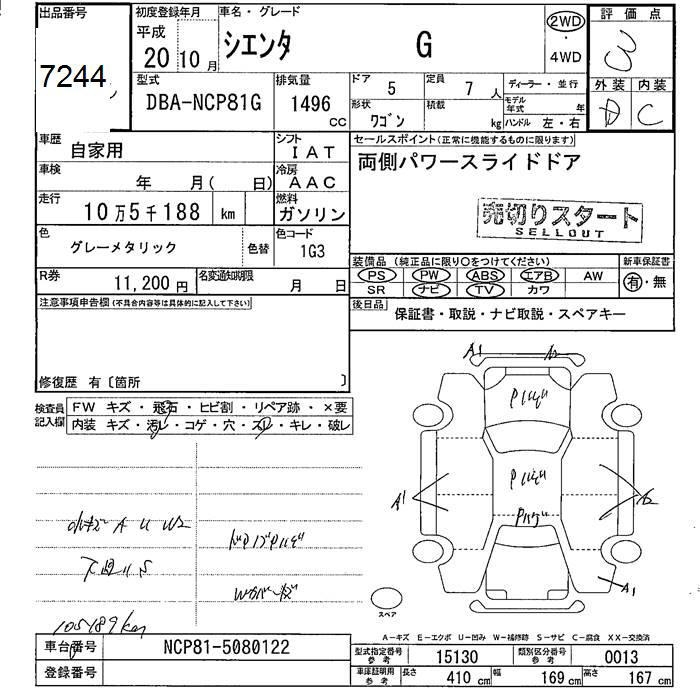 出品番号
7244
初度登録年月
平成
20年10月
車名・グレード
シエンタ G
2WD
・
4WD
評価点
3
外装 内装
D C
型式
DBA-NCP81G
排気量
1496
CC
ドア 5
定員 7 人
ディーラー・並行
形状
ワゴン
積載
kg
モデル年式 年
ハンドル 左・右
車歴
自家用
シフト
IAT
車検
年 月( 日)
冷房
AAC
走行
10万5千188 km
燃料
ガソリン
色
グレーメタリック
色替
色コード
1G3
R券
11,200 円
名変通知期限
月 日
セールスポイント(正常に機能するものに限ります)
両側パワースライドドア
売切りスタート
SELLOUT
装備品 (純正品に限り○をつけてください)
新車保証書
PS PW ABS エアB AW
SR ナビ TV カワ
有・無
後日品
保証書・取説・ナビ取説・スペアキー
注意事項申告欄(不具合内容等は具体的に記入して下さい)
修復歴 有〔箇所 〕
検査員
記入欄
FW キズ・飛石・ヒビ割・リペア跡・×要
内装 キズ・汚レ・コゲ・穴・スレ・キレ・破レ
A1
A1
W2
A1
小キズ A U W2
下廻り S
105189km
スペア
A-キズ E-エクボ U-凹み W-補修跡 S-サビ C-腐食 XX-交換済
車台番号
NCP81-5080122
登録番号
型式指定番号
参考
15130
類別区分番号
参考
0013
車庫証明用
参考
長さ 410 cm
幅 169 cm
高さ 167 cm